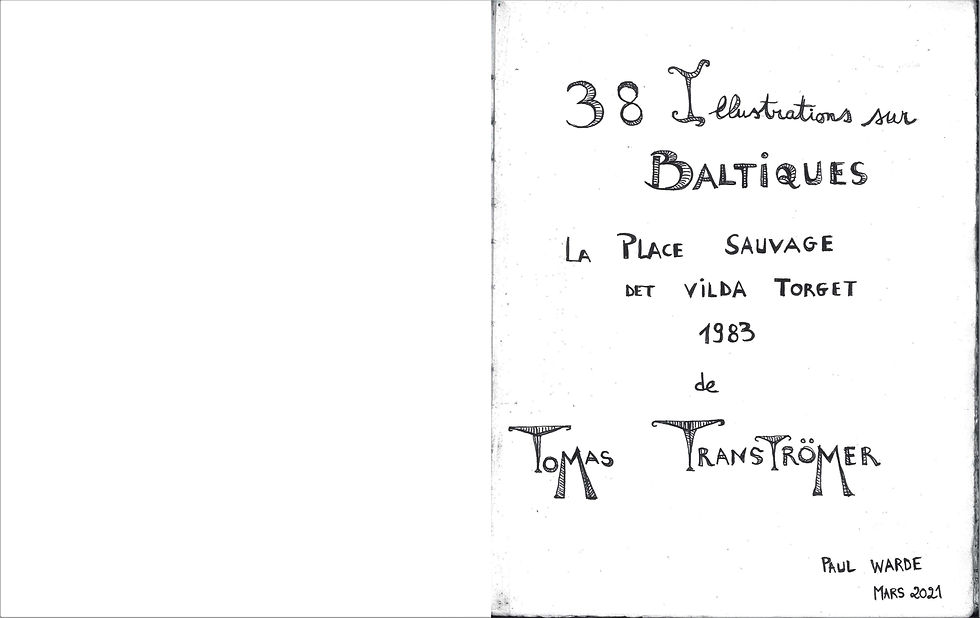 38 Illustrations sur
BALTiQUES
LA PLACE SAUVAGE
DET ViLDA TORGET
1983
de
TOMAS TRANSTRÖMER
PAUL WARDE
MARS 2021